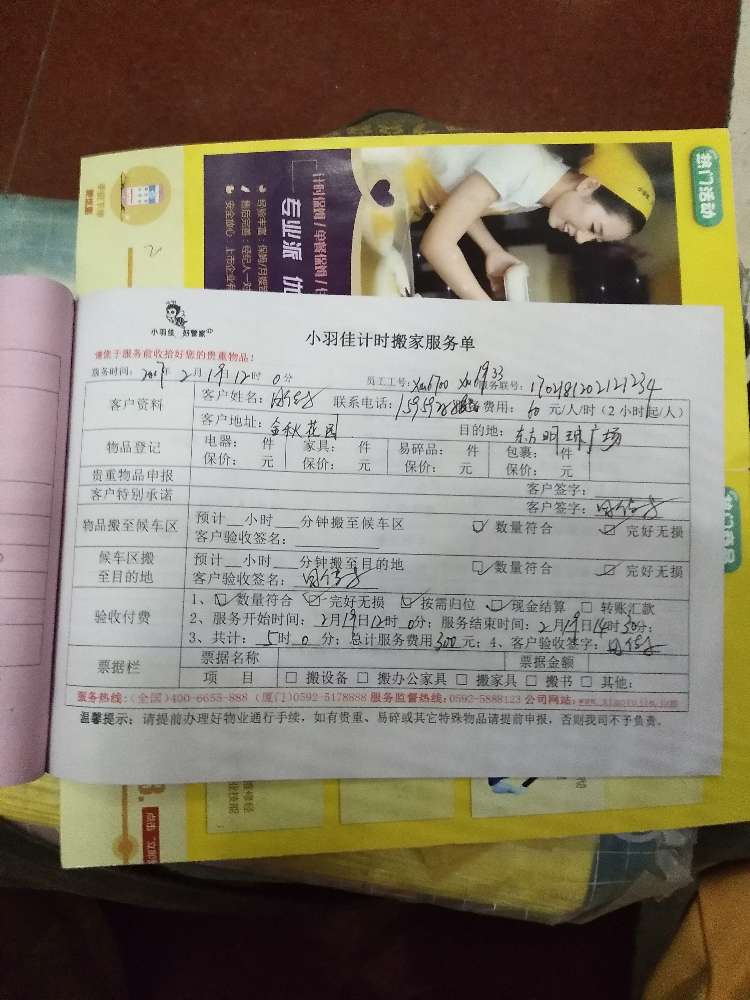 热门活动
计时保姆/单餐保姆/
专业派 优
经验丰富：保姆/月嫂
售后完善：经纪人一对
安全放心：上市企业
小羽佳 好管家
小羽佳计时搬家服务单
请您于服务前收拾好您的贵重物品！
服务时间：2017年 2月19日12时 0分 员工工号： 服务联号：1702181202121234
客户资料 客户姓名： 联系电话： 费用：60元/人/时（2小时起/人）
客户地址：金秋花园 目的地：东方明珠广场
物品登记 电器： 件 家具： 件 易碎品： 件 包裹： 件
保价： 元 保价： 元 保价： 元 保价： 元
贵重物品申报 客户签字：
客户特别承诺 客户签字：
物品搬至候车区 预计__小时___分钟搬至候车区 ☑数量符合 ☑完好无损
客户验收签名：
候车区搬至目的地 预计__小时___分钟搬至目的地 ☑数量符合 ☑完好无损
客户验收签名：
验收付费 1、☑数量符合 ☑完好无损 ☑按需归位 ☑现金结算 □转账汇款
2、服务开始时间：2月19日12时0分；服务结束时间：2月19日14时30分；
3、共计：5时0分；总计服务费用300元；4、客户验收签字：
票据栏 票据名称 票据金额
项 目 □搬设备 □搬办公家具 □搬家具 □搬书 □其他：
服务热线：（全国）400-6655-888 （厦门）0592-5178888 服务监督热线：0592-5888123 公司网站：
温馨提示：请提前办理好物业通行手续，如有贵重、易碎或其它特殊物品请提前申报，否则我司不予负责。